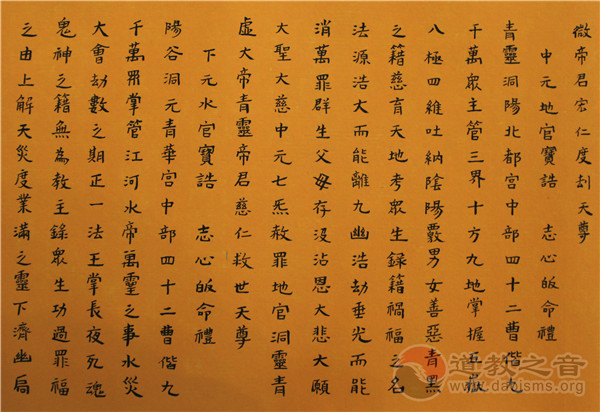 微帝君宏仁度刦天尊
中元地官寶誥 志心皈命禮
青靈洞陽北都宮中部四十二曹偕九
千萬眾主管三界十方九地掌握五嶽
八極四維吐納陰陽覈男女善惡青黑
之籍慈育天地考眾生錄籍禍福之名
法源浩大而能離九幽浩劫垂光而能
消萬罪群生父母存沒沾恩大悲大願
大聖大慈中元七炁赦罪地官洞靈青
虛大帝青靈帝君慈仁救世天尊
下元水官寶誥 志心皈命禮
陽谷洞元青華宮中部四十二曹偕九
千萬眾掌管江河水帝萬靈之事水災
大會劫數之期正一法王掌長夜死魂
鬼神之籍無為教主錄眾生功過罪福
之由上解天災度業滿之靈下濟幽扃
道教之音
www.daoisms.org